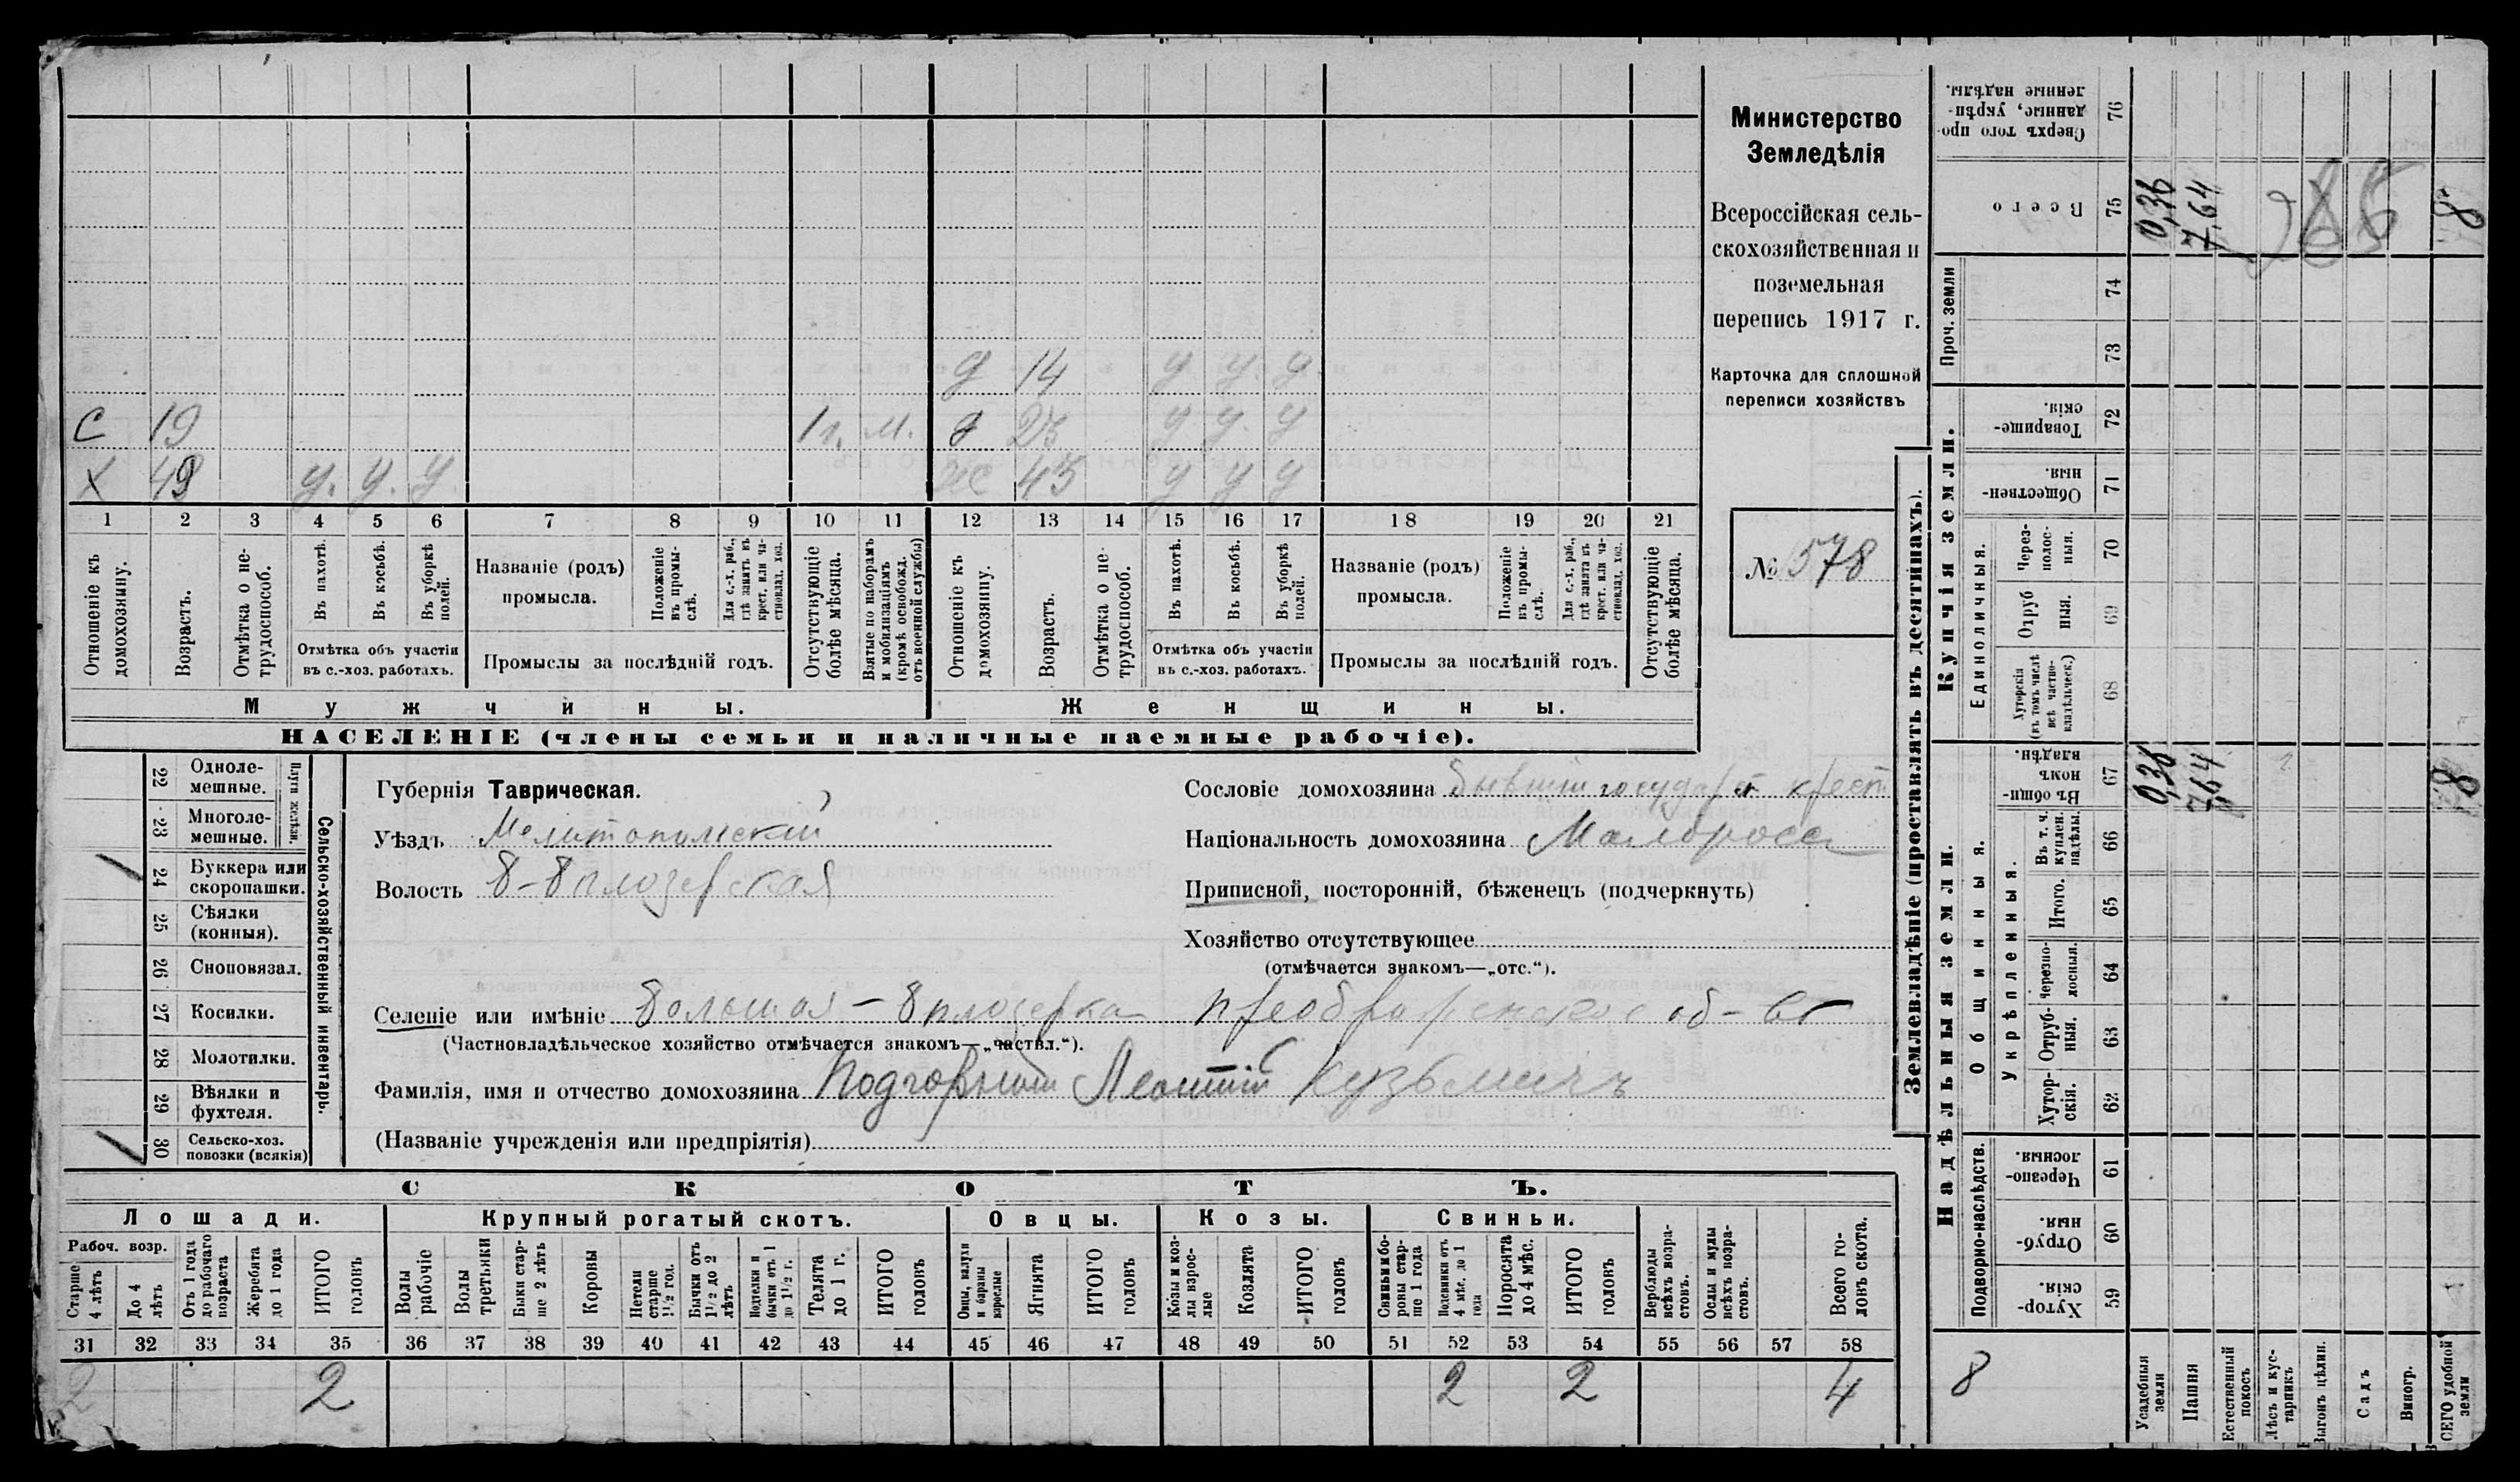 Министерство
Земледѣлія
Всероссійская сель-
скохозяйственная и
поземельная
перепись 1917 г.
Карточка для сплошной
переписи хозяйствъ
№ 578
д 14 у у. у.
С 19 1 г. м. д 23 у. у. у
Х 49 у. у. у ж 43 у у у
1 2 3 4 5 6 7 8 9 10 11 12 13 14 15 16 17 18 19 20 21
Отношеніе къ домохозяину.
Возрастъ.
Отмѣтка о не-трудоспособ.
Въ пахотѣ.
Въ косьбѣ.
Въ уборкѣ полей.
Отмѣтка объ участіи
въ с.-хоз. работахъ.
Названіе (родъ)
промысла.
Положеніе въ промы-слѣ.
Для с.-х. раб., гдѣ занятъ въ крест. или ча-стновлад. хоз.
Промыслы за послѣдній годъ.
Отсутствующіе болѣе мѣсяца.
Взятые по наборамъ и мобилизаціямъ (кромѣ освобожд. отъ военной службы)
Отношеніе къ домохозяину.
Возрастъ.
Отмѣтка о не-трудоспособ.
Въ пахотѣ.
Въ косьбѣ.
Въ уборкѣ полей.
Отмѣтка объ участіи
въ с.-хоз. работахъ.
Названіе (родъ)
промысла.
Положеніе въ промы-слѣ.
Для с.-х. раб., гдѣ занята въ крест. или ча-стновлад. хоз.
Промыслы за послѣдній годъ.
Отсутствующіе болѣе мѣсяца.
Мужчины. Женщины.
НАСЕЛЕНІЕ (члены семьи и наличные наемные рабочіе).
Сельско-хозяйственный инвентарь.
Плуги желѣзн.
22 Одноле-мешные.
23 Многоле-мешные.
/ 24 Буккера или скоропашки.
25 Сѣялки (конныя).
26 Сноповязал.
27 Косилки.
28 Молотилки.
29 Вѣялки и фухтеля.
/ 30 Сельско-хоз. повозки (всякія)
Губернія Таврическая.
Уѣздъ Мелитопольскій
Волость Б-Бплозерская
Сословіе домохозяина бывшій государст крест
Національность домохозяина Малоросс
Приписной, посторонній, бѣженецъ (подчеркнуть)
Хозяйство отсутствующее
(отмѣчается знакомъ—„отс.“).
Селеніе или имѣніе Большая-Бплозерка Преображенское об-во
(Частновладѣльческое хозяйство отмѣчается знакомъ—„частвл.“).
Фамилія, имя и отчество домохозяина Подгорный Леонтій Кузьмичъ
(Названіе учрежденія или предпріятія)
СКОТЪ.
Лошади. Крупный рогатый скотъ. Овцы. Козы. Свиньи.
Рабоч. возр.
Старше 4 лѣтъ
До 4 лѣтъ
Отъ 1 года до рабочаго возраста
Жеребята до 1 года
ИТОГО головъ
Волы рабочіе
Волы третьяки
Быки стар-ше 2 лѣтъ
Коровы
Нетели старше 1½ год.
Бычки отъ 1½ до 2 лѣтъ
Подтелки и бычки отъ 1 до 1½ г.
Телята до 1 г.
ИТОГО головъ
Овцы, валухи и бараны взрослые
Ягнята
ИТОГО головъ
Козы и коз-лы взрос-лые
Козлята
ИТОГО головъ
Свиньи и бо-ровы стар-ше 1 года
Подсвинки отъ 4 мѣс. до 1 года
Поросята до 4 мѣс.
ИТОГО головъ
Верблюды всѣхъ возра-стовъ.
Ослы и мулы всѣхъ возра-стовъ.
Всего го-ловъ скота.
31 32 33 34 35 36 37 38 39 40 41 42 43 44 45 46 47 48 49 50 51 52 53 54 55 56 57 58
2 2 2 2 4
Землевладѣніе (проставлять въ десятинахъ).
Надѣльныя земли.
Подворно-наслѣдств.
Хутор-скія. 59
Отруб-ныя. 60
Черезпо-лосныя. 61
Общинныя.
Укрѣпленныя.
Хутор-скія. 62
Отруб-ныя. 63
Черезпо-лосныя. 64
Итого. 65
Въ т. ч. куплен. надѣлы. 66
Въ общин-номъ владѣн. 67
Купчія земли.
Единоличныя.
Хуторскія (въ томъ числѣ всѣ частно-владѣльческ.) 68
Отруб ныя. 69
Через-полос-ныя. 70
Обществен-ныя. 71
Товарище-скія. 72
Проч. земли
73
74
Всего 75
Сверхъ того про-данные, укрѣп-ленные надѣлы. 76
0,36 7,64 285 8
0,36 7,64 8
8
Усадебныя земли
Пашня
Естественный покосъ
Лѣсъ и кус-тарникъ
Выгонъ цѣлин.
Садъ
Виногр.
ВСЕГО удобной земли